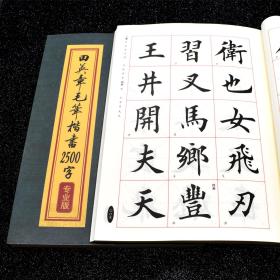 田英章毛筆楷書
2500
字
专业版
衛也女飛刃
習叉馬鄉豐
王井開夫天